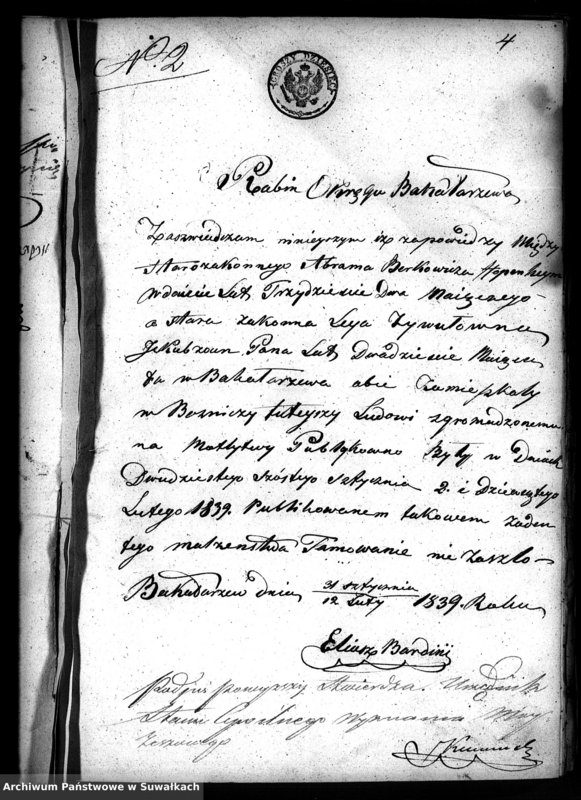 4
No. 2
GROSZY DZIESIĘĆ
Rabin Okręgu Bakałarzewa
Zaswiadczam ninieyszym iż zapowiedzy Między
starozakonnego Abrama Berkowicza
Wdowcie Lat Trzydziescie Dwa Maiącego
a stara zakonna Leya
Lat Dwadziescie
w Bakałarzewa obie Zamieszkały
w Bozniczy tuteyszy Ludowi zgromadzonemu
na Modlytwy Publykowno były w Dniach
Dwudziestego Szóstego Sztycznia 2. i Dziewiątego
Lutego 1839. Publikowanem takowem żaden
tego malzenstwa Tamowanie nie Zaszło
Bakałarzew dnia 31 sztycznia / 12 Luty 1839. Roku
Eliasz Bardini
Podpis powyzszy stwierdza. Urzędnik
Stanu Cywilnego Wyznania
Archiwum Państwowe w Suwałkach